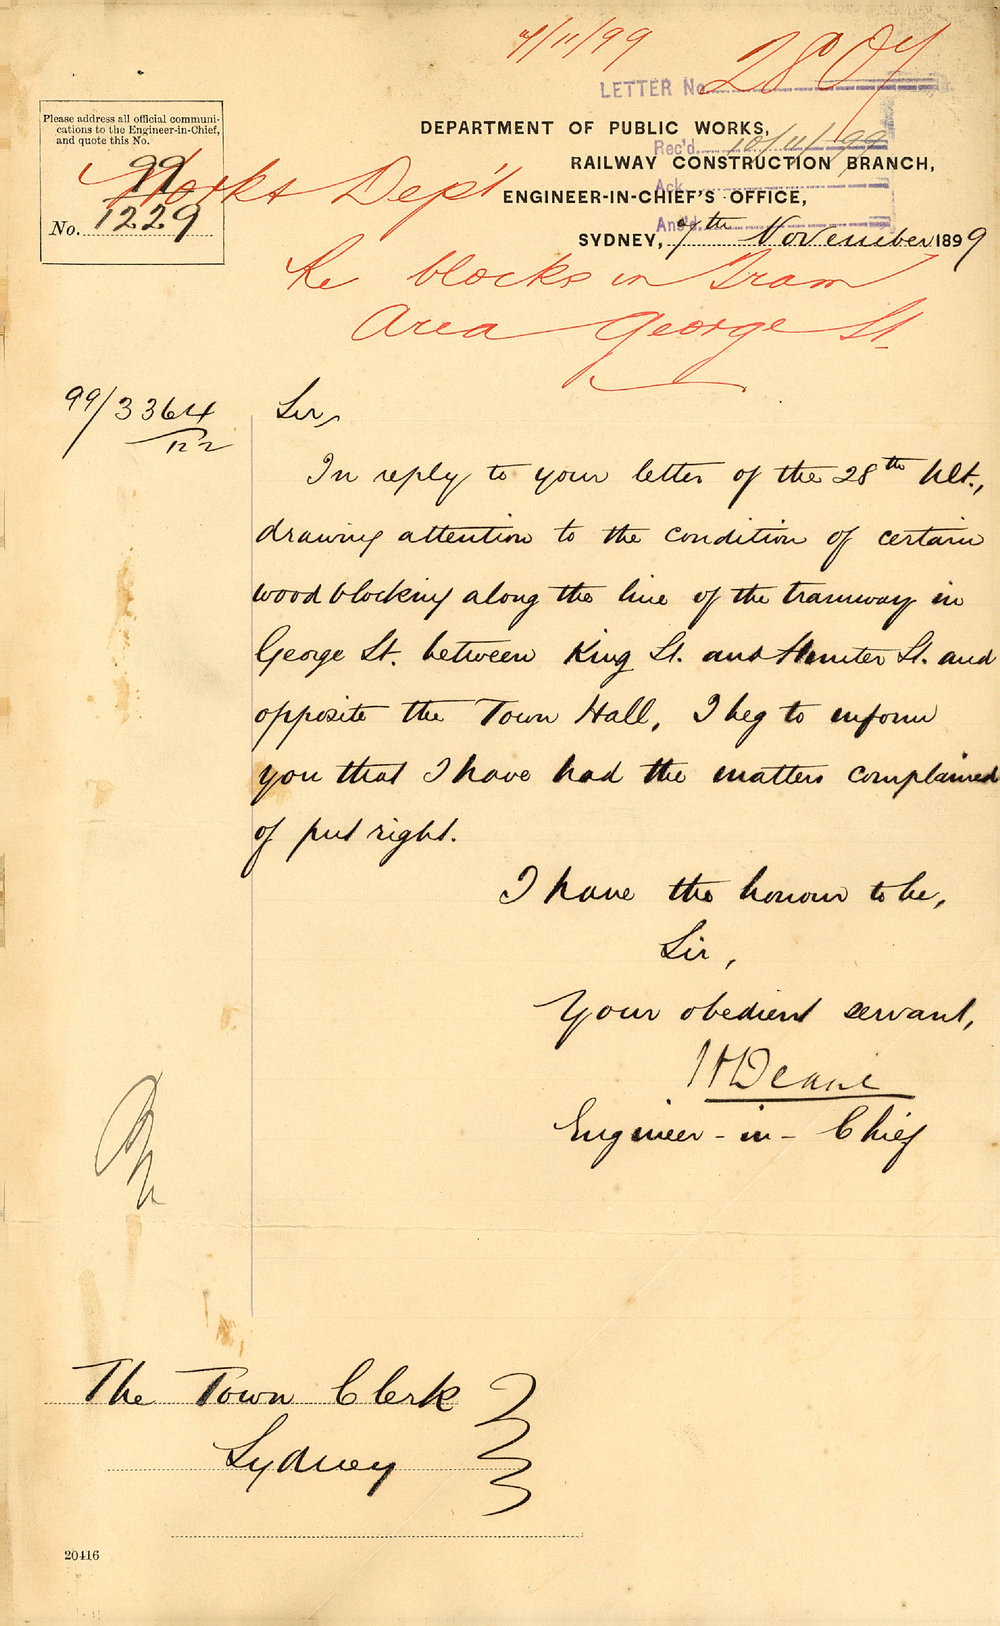 9/11/99
2807
LETTER No.
Please address all official communi-
cations to the Engineer-in-Chief,
and quote this No.
99
No. 1229
DEPARTMENT OF PUBLIC WORKS,
Rec'd. 10/11/99
RAILWAY CONSTRUCTION BRANCH,
Ack.
Works Dep't
ENGINEER-IN-CHIEF'S OFFICE,
Ans'd.
SYDNEY, 9th November 1899
Re blocks in Tram
Area George St.
99/3364
Sir,
In reply to your letter of the 28th Ult.,
drawing attention to the condition of certain
wood blocking along the line of the tramway in
George St. between King St. and Hunter St. and
opposite the Town Hall, I beg to inform
you that I have had the matters complained
of put right.
I have the honour to be,
Sir,
Your obedient servant,
H Deane
Engineer-in-Chief
The Town Clerk
Sydney
20416